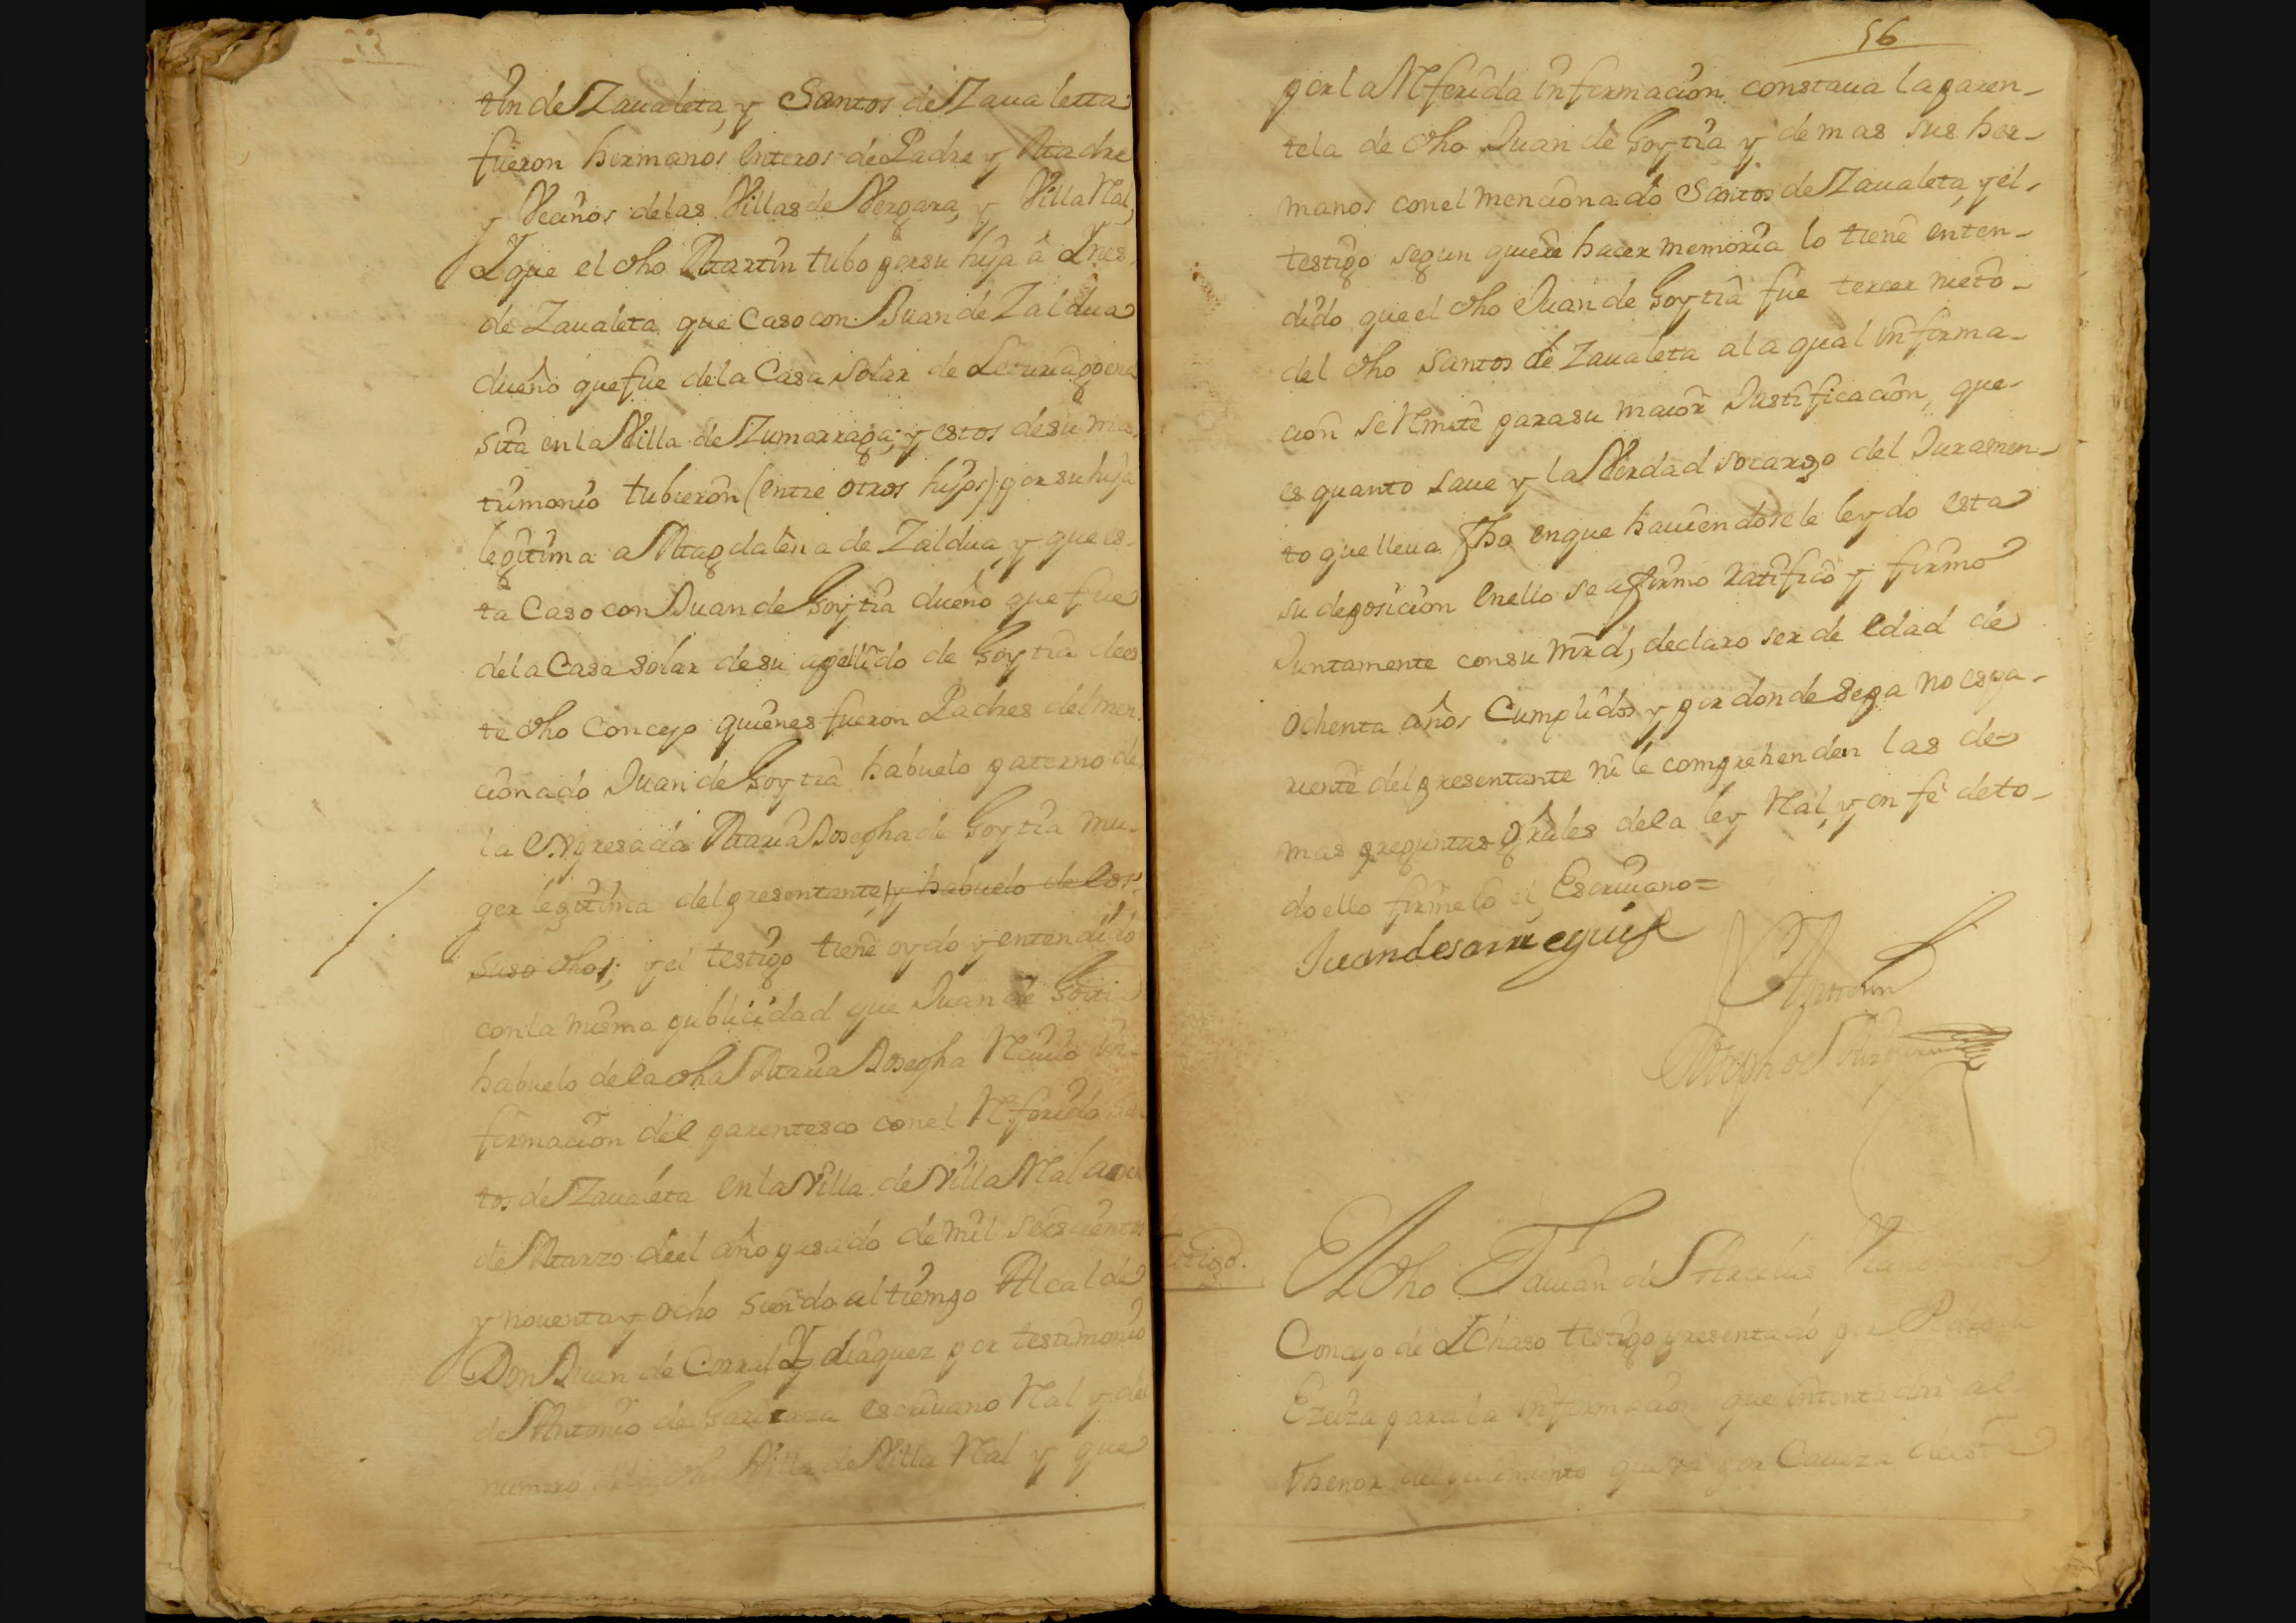 tin de Zaualeta, y Santos de Zaualetta
fueron hermanos enteros de Padre y Madre
y Vecinos delas Villas de Vergara, y Villa Ral,
Y que el dho Martin tubo por su hija â Ynes
de Zaualeta que Caso con Juan de Zaldua
dueño que fue dela Casa Solar de
sita en la Villa de Zumarraga; y estos de su ma
trimonio tubieron (entre otros hijos) por su hija
legitima a Magdalena de Zaldua, y que es-
ta Caso con Juan de Goytia dueño que fue
dela Casa solar desu apellido de Goytia de es
te dho Concejo quienes fueron Padres del men
cionado Juan de Goytia habuelo paterno de
la expresada Maria Josepha de Goytia mu-
ger legitima del presentante, y habuelo de los
suso dhos; y el testigo tiene oydo y entendido
con la misma publicidad que Juan de Goitia
habuelo dela dha Maria Josepha Reciuio in-
formacion del parentesco con el Referido San
tos de Zaualeta en la Villa de Villa Ral
de Marzo de el año pasado de mil seiscientos
y nouenta y ocho siendo al tiempo Alcalde
Don Juan de Corral Ydiaquez por testimonio
de Antonio de escriuano Ral y del
numero dela dha Villa de Villa Ral y que
56
por la Referida informacion constaua la paren-
tela de dho Juan de Goytia y demas sus her-
manos con el mencionado Santos de Zaualeta, y el
testigo segun quiere hacer memoria lo tiene enten-
dido que el dho Juan de Goytia fue tercer nieto
del dho Santos de Zaualeta ala qual informa-
cion se Remite para su maior Justificacion, que
es quanto saue y la Verdad socargo del Juramen-
to que lleua fho en que hauiendosele leydo esta
su deposicion en ello se afirmo ratifico y firmo
Juntamente con su mrd, declaro ser de edad de
ochenta años Cumplidos y por donde sepa no es pa-
riente del presentante ni le comprehenden las de-
mas preguntas grales dela ley Ral, y en fe de to-
do ello firme lo el Escriuano=
Juan de
Ante mi
Joseph de
testigo.
El dho de Vecino
Concejo de Ychaso testigo presentado por Pedro
para la informacion que intenta dar al
thenor del pedimento que va por Caueza de es